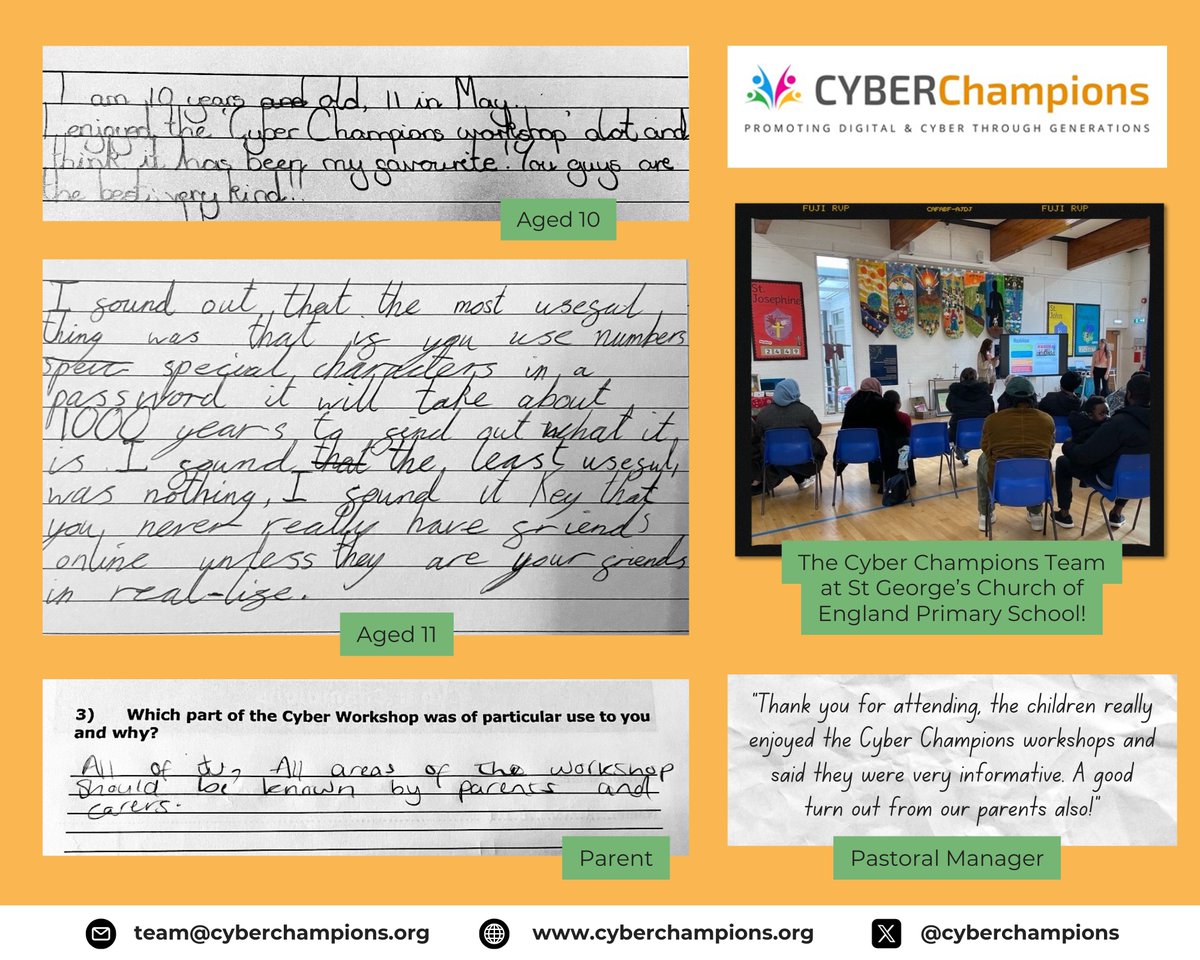 I am 10 years and old, 11 in May.
I enjoyed the 'Cyber Champions workshop' alot and
think it has been my favourite! You guys are
the best, very kind!!
Aged 10
I found out that the most useful
thing was that if you use numbers
special charaters in a
password it will take about
1000 years to find out what it
is. I found that the least useful
was nothing, I found it key that
you never really have friends
online unless they are your friends
in real-life.
Aged 11
3) Which part of the Cyber Workshop was of particular use to you
and why?
All of it, All areas of the workshop
should be known by parents and
carers.
Parent
CYBERChampions
PROMOTING DIGITAL & CYBER THROUGH GENERATIONS
FUJI RUP CAFAEF-AJDJ FUJI RUP
St. Josephine
2 4 4 9
St. John
The Cyber Champions Team
at St George's Church of
England Primary School!
"Thank you for attending, the children really
enjoyed the Cyber Champions workshops and
said they were very informative. A good
turn out from our parents also!"
Pastoral Manager
team@cyberchampions.org
www.cyberchampions.org
@cyberchampions